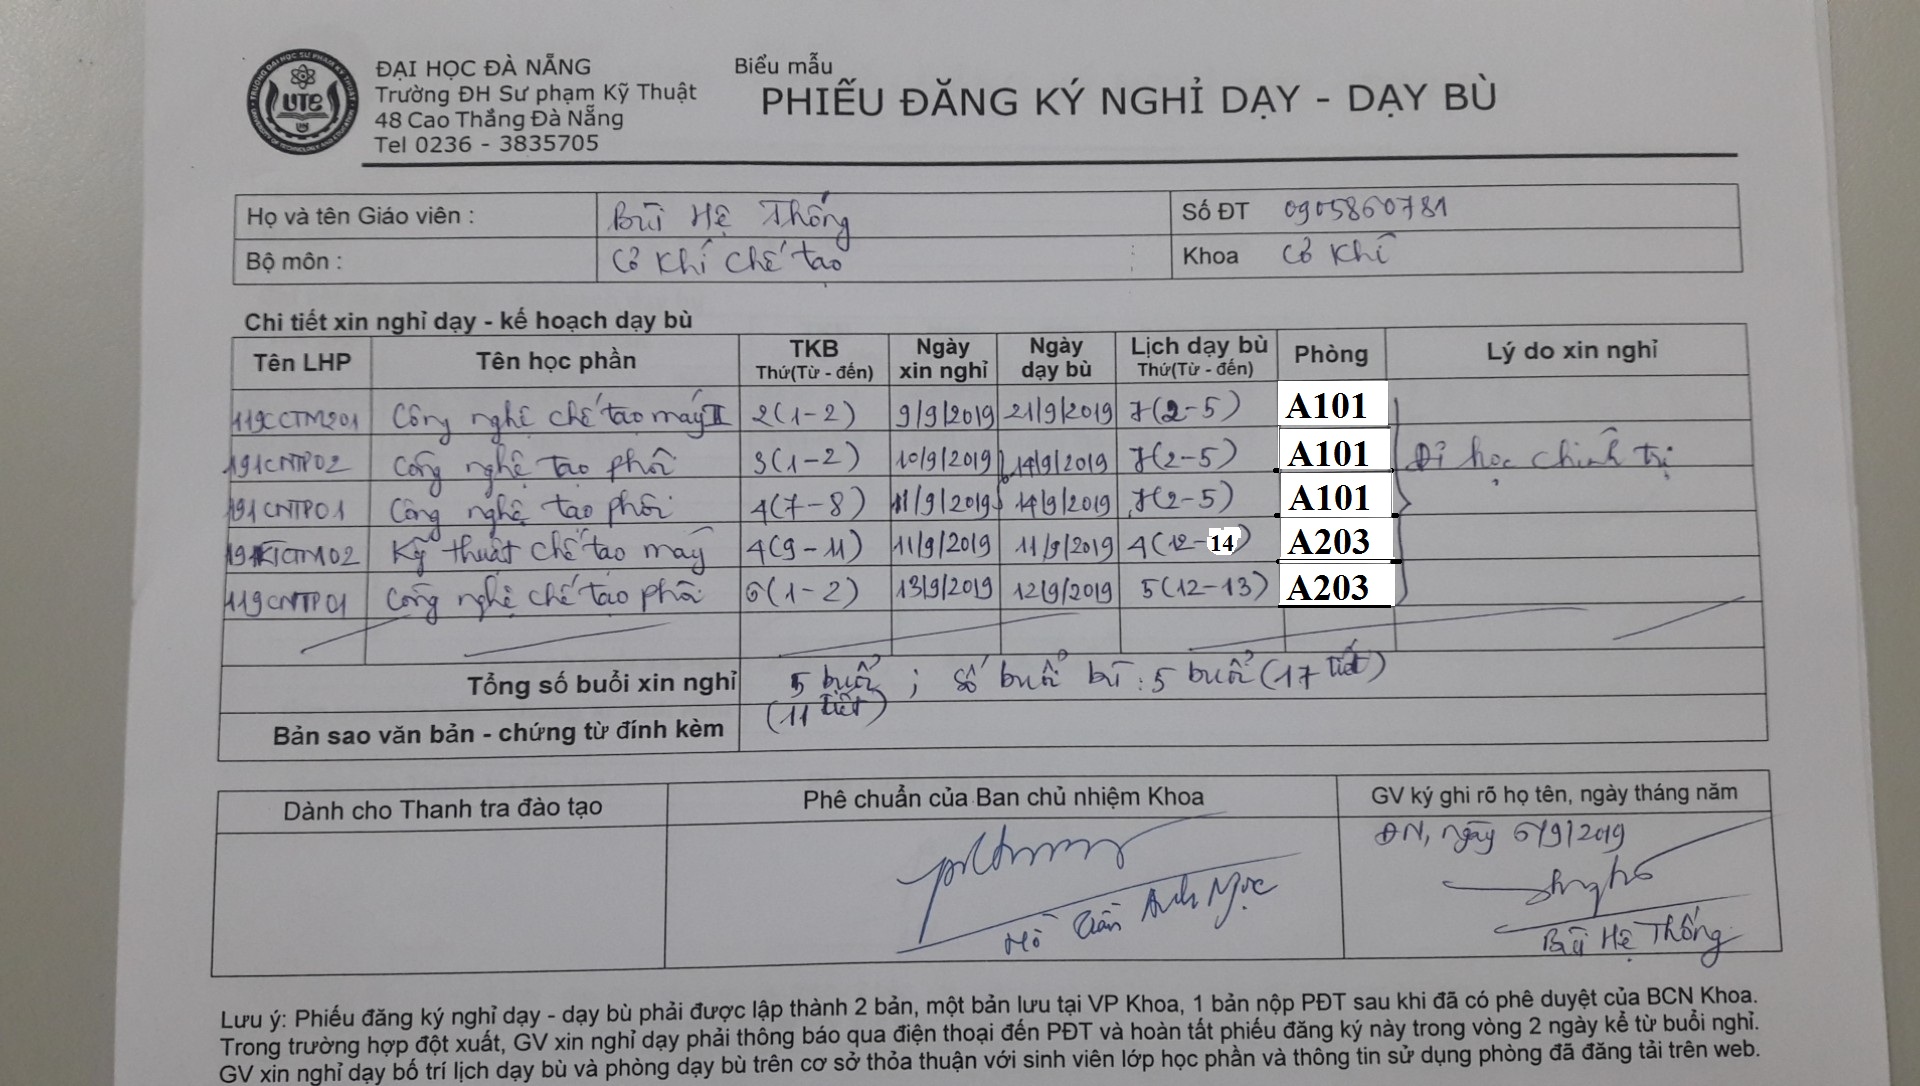 ĐẠI HỌC ĐÀ NẴNG
Trường ĐH Sư phạm Kỹ Thuật
48 Cao Thắng Đà Nẵng
Tel 0236 - 3835705
UTE
Biểu mẫu
PHIẾU ĐĂNG KÝ NGHỈ DẠY - DẠY BÙ
Họ và tên Giáo viên : Bùi Hệ Thống Số ĐT 0905860781
Bộ môn : Cơ Khí Chế tạo Khoa Cơ Khí
Chi tiết xin nghỉ dạy - kế hoạch dạy bù
Tên LHP Tên học phần TKB Thứ(Từ - đến) Ngày xin nghỉ Ngày dạy bù Lịch dạy bù Thứ(Từ - đến) Phòng Lý do xin nghỉ
119CCTM201 Công nghệ chế tạo máy II 2(1-2) 9/9/2019 21/9/2019 7(2-5) A101
191CNTP02 Công nghệ tạo phôi 3(1-2) 10/9/2019 14/9/2019 7(2-5) A101 Đi học chính trị
191CNTP01 Công nghệ tạo phôi 4(7-8) 11/9/2019 14/9/2019 7(2-5) A101
Kỹ thuật chế tạo máy 4(9-11) 11/9/2019 11/9/2019 4(12-14) A203
119CNTP01 Công nghệ chế tạo phôi 6(1-2) 13/9/2019 12/9/2019 5(12-13) A203
Tổng số buổi xin nghỉ 5 buổi ; số buổi bù : 5 buổi (17 tiết)
(11 tiết)
Bản sao văn bản - chứng từ đính kèm
Dành cho Thanh tra đào tạo Phê chuẩn của Ban chủ nhiệm Khoa GV ký ghi rõ họ tên, ngày tháng năm
ĐN, ngày 6/9/2019
Hồ Trần Anh Ngọc
Bùi Hệ Thống
Lưu ý: Phiếu đăng ký nghỉ dạy - dạy bù phải được lập thành 2 bản, một bản lưu tại VP Khoa, 1 bản nộp PĐT sau khi đã có phê duyệt của BCN Khoa.
Trong trường hợp đột xuất, GV xin nghỉ dạy phải thông báo qua điện thoại đến PĐT và hoàn tất phiếu đăng ký này trong vòng 2 ngày kể từ buổi nghỉ.
GV xin nghỉ dạy bố trí lịch dạy bù và phòng dạy bù trên cơ sở thỏa thuận với sinh viên lớp học phần và thông tin sử dụng phòng đã đăng tải trên web.